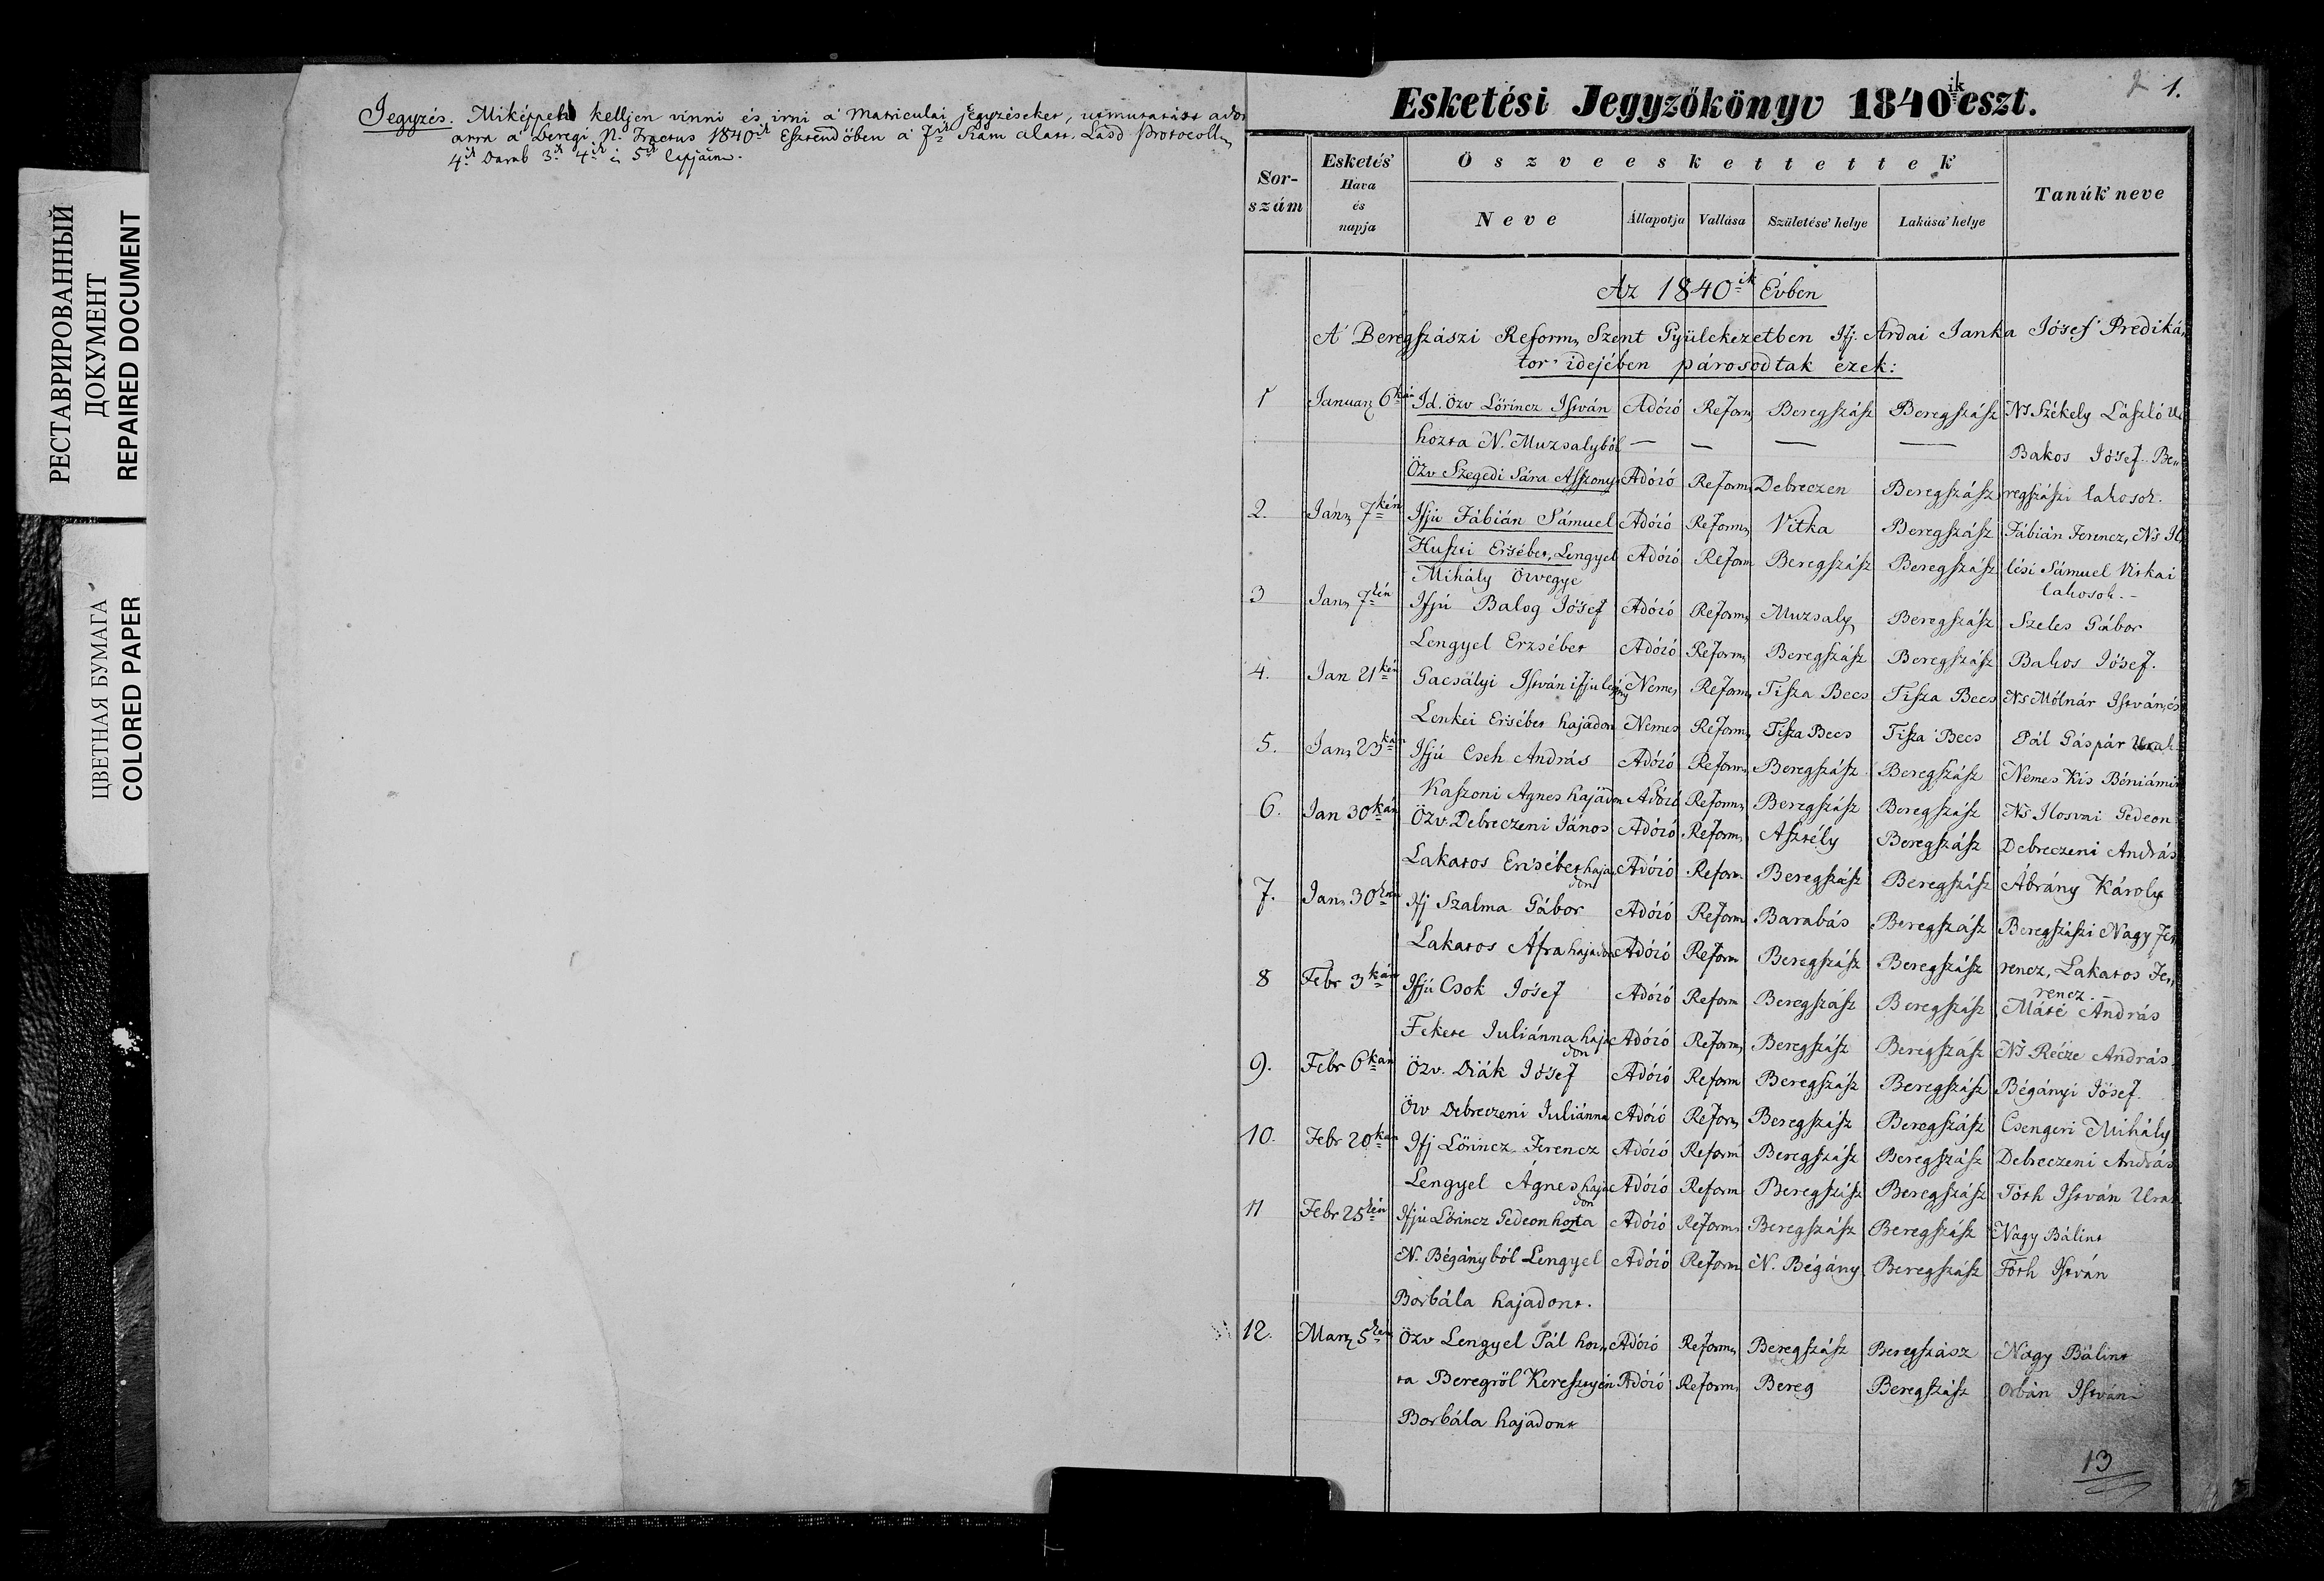 РЕСТАВРИРОВАННЫЙ
ДОКУМЕНТ
REPAIRED DOCUMENT
ЦВЕТНАЯ БУМАГА
COLORED PAPER
Jegyzés. Miképpen kelljen vinni és irni a' Matriculai jegyzéseket, utmutatást ador
arra a' Beregi N. Tractus 1840ik Esztendőben a' 7ik Szám alatt. Lásd Protocoll.
4ik Darab 3ik 4ik és 5ik lapjain.
1.
Esketési Jegyzőkönyv 1840ik eszt.
Sor-szám
Esketés' Hava és napja
Öszveeskettettek
Neve
Állapotja
Vallása
Születése' helye
Lakása' helye
Tanúk' neve
Az 1840ik Évben
A' Beregszászi Reform, Szent Gyülekezetben Ifj. Árdai Janka Jósef Prediká-
tor idejében párosodtak ezek:
1 Januar 6kán Id. Özv Lörincz István Adózó Reform, Beregszász Beregszász Ns Székely László
hozta N. Muzsalyból — — — — Bakos Jósef Be„
Özv Szegedi Sára Asszony Adózó Reform, Debreczen Beregszász regszászi lakosok.
2. Jan, 7kén Ifjú Fábián Sámuel Adózó Reform, Vitka Beregszász Fábián Ferencz, Ns
Huszti Ersébet, Lengyel Adózó Reform Beregszász Beregszász lési Sámuel Vitkai
Mihály Özvegye lakosok. -
3 Jan, 7kén Ifjú Balog Jósef Adózó Reform, Muzsaly Beregszász Szeles Gábor
Lengyel Erzsébet Adózó Reform, Beregszász Beregszász Bakos Jósef.
4. Jan 21kén Gacsályi István ifju legény Nemes Reform, Tisza Becs Tisza Becs Ns Mólnár István, és
Lenkei Ersébet hajadon Nemes Reform, Tisza Becs Tisza Becs Pál Gáspár Urak
5. Jan, 23kán Ifjú Cseh András Adózó Reform, Beregszász Beregszász Nemes Kis Béniámin
Kaszoni Agnes hajadon Adózó Reform, Beregszász Beregszász Ns Ilosvai Gedeon
6. Jan 30kán Özv. Debreczeni János Adózó Reform, Asztély Beregszász Debreczeni András
Lakatos Ersébet hajadon Adózó Reform Beregszász Beregszász Ábrány Károly
7. Jan, 30kán Ifj Szalma Gábor Adózó Reform Barabás Beregszász Beregszászi Nagy Fe„
Lakatos Áfra hajadon Adózó Reform Beregszász Beregszász rencz, Lakatos Fe„
rencz.
8 Febr 3kán Ifjú Csok Josef Adózó Reform Beregszász Beregszász Máté András
Fekete Juliánna hajadon Adózó Reform, Beregszász Beregszász Ns Récze András.
9. Febr 6kán Özv. Diák Jósef Adózó Reform Beregszász Beregszász Bégányi Jósef.
Özv Debreczeni Juliánna Adózó Reform, Beregszász Beregszász Csengeri Mihály
10. Febr 20kán Ifj Lörincz Ferencz Adózó Reform Beregszász Beregszász Debreczeni András
Lengyel Ágnes hajadon Adózó Reform Beregszász Beregszász Tóth István
11 Febr 25kén Ifjú Lörincz Gedeon hozta Adózó Reform, Beregszász Beregszász Nagy Bálint
N. Bégányból Lengyel Adózó Reform N. Bégány Beregszász Tóth István
Borbála hajadont.
12. Mart, 5kén Özv Lengyel Pál hoz„ Adózó Reform, Beregszász Beregszász Nagy Bálint
ta Beregről Keresztyén Adózó Reform, Bereg Beregszász Orbán István
Borbála hajadont
13